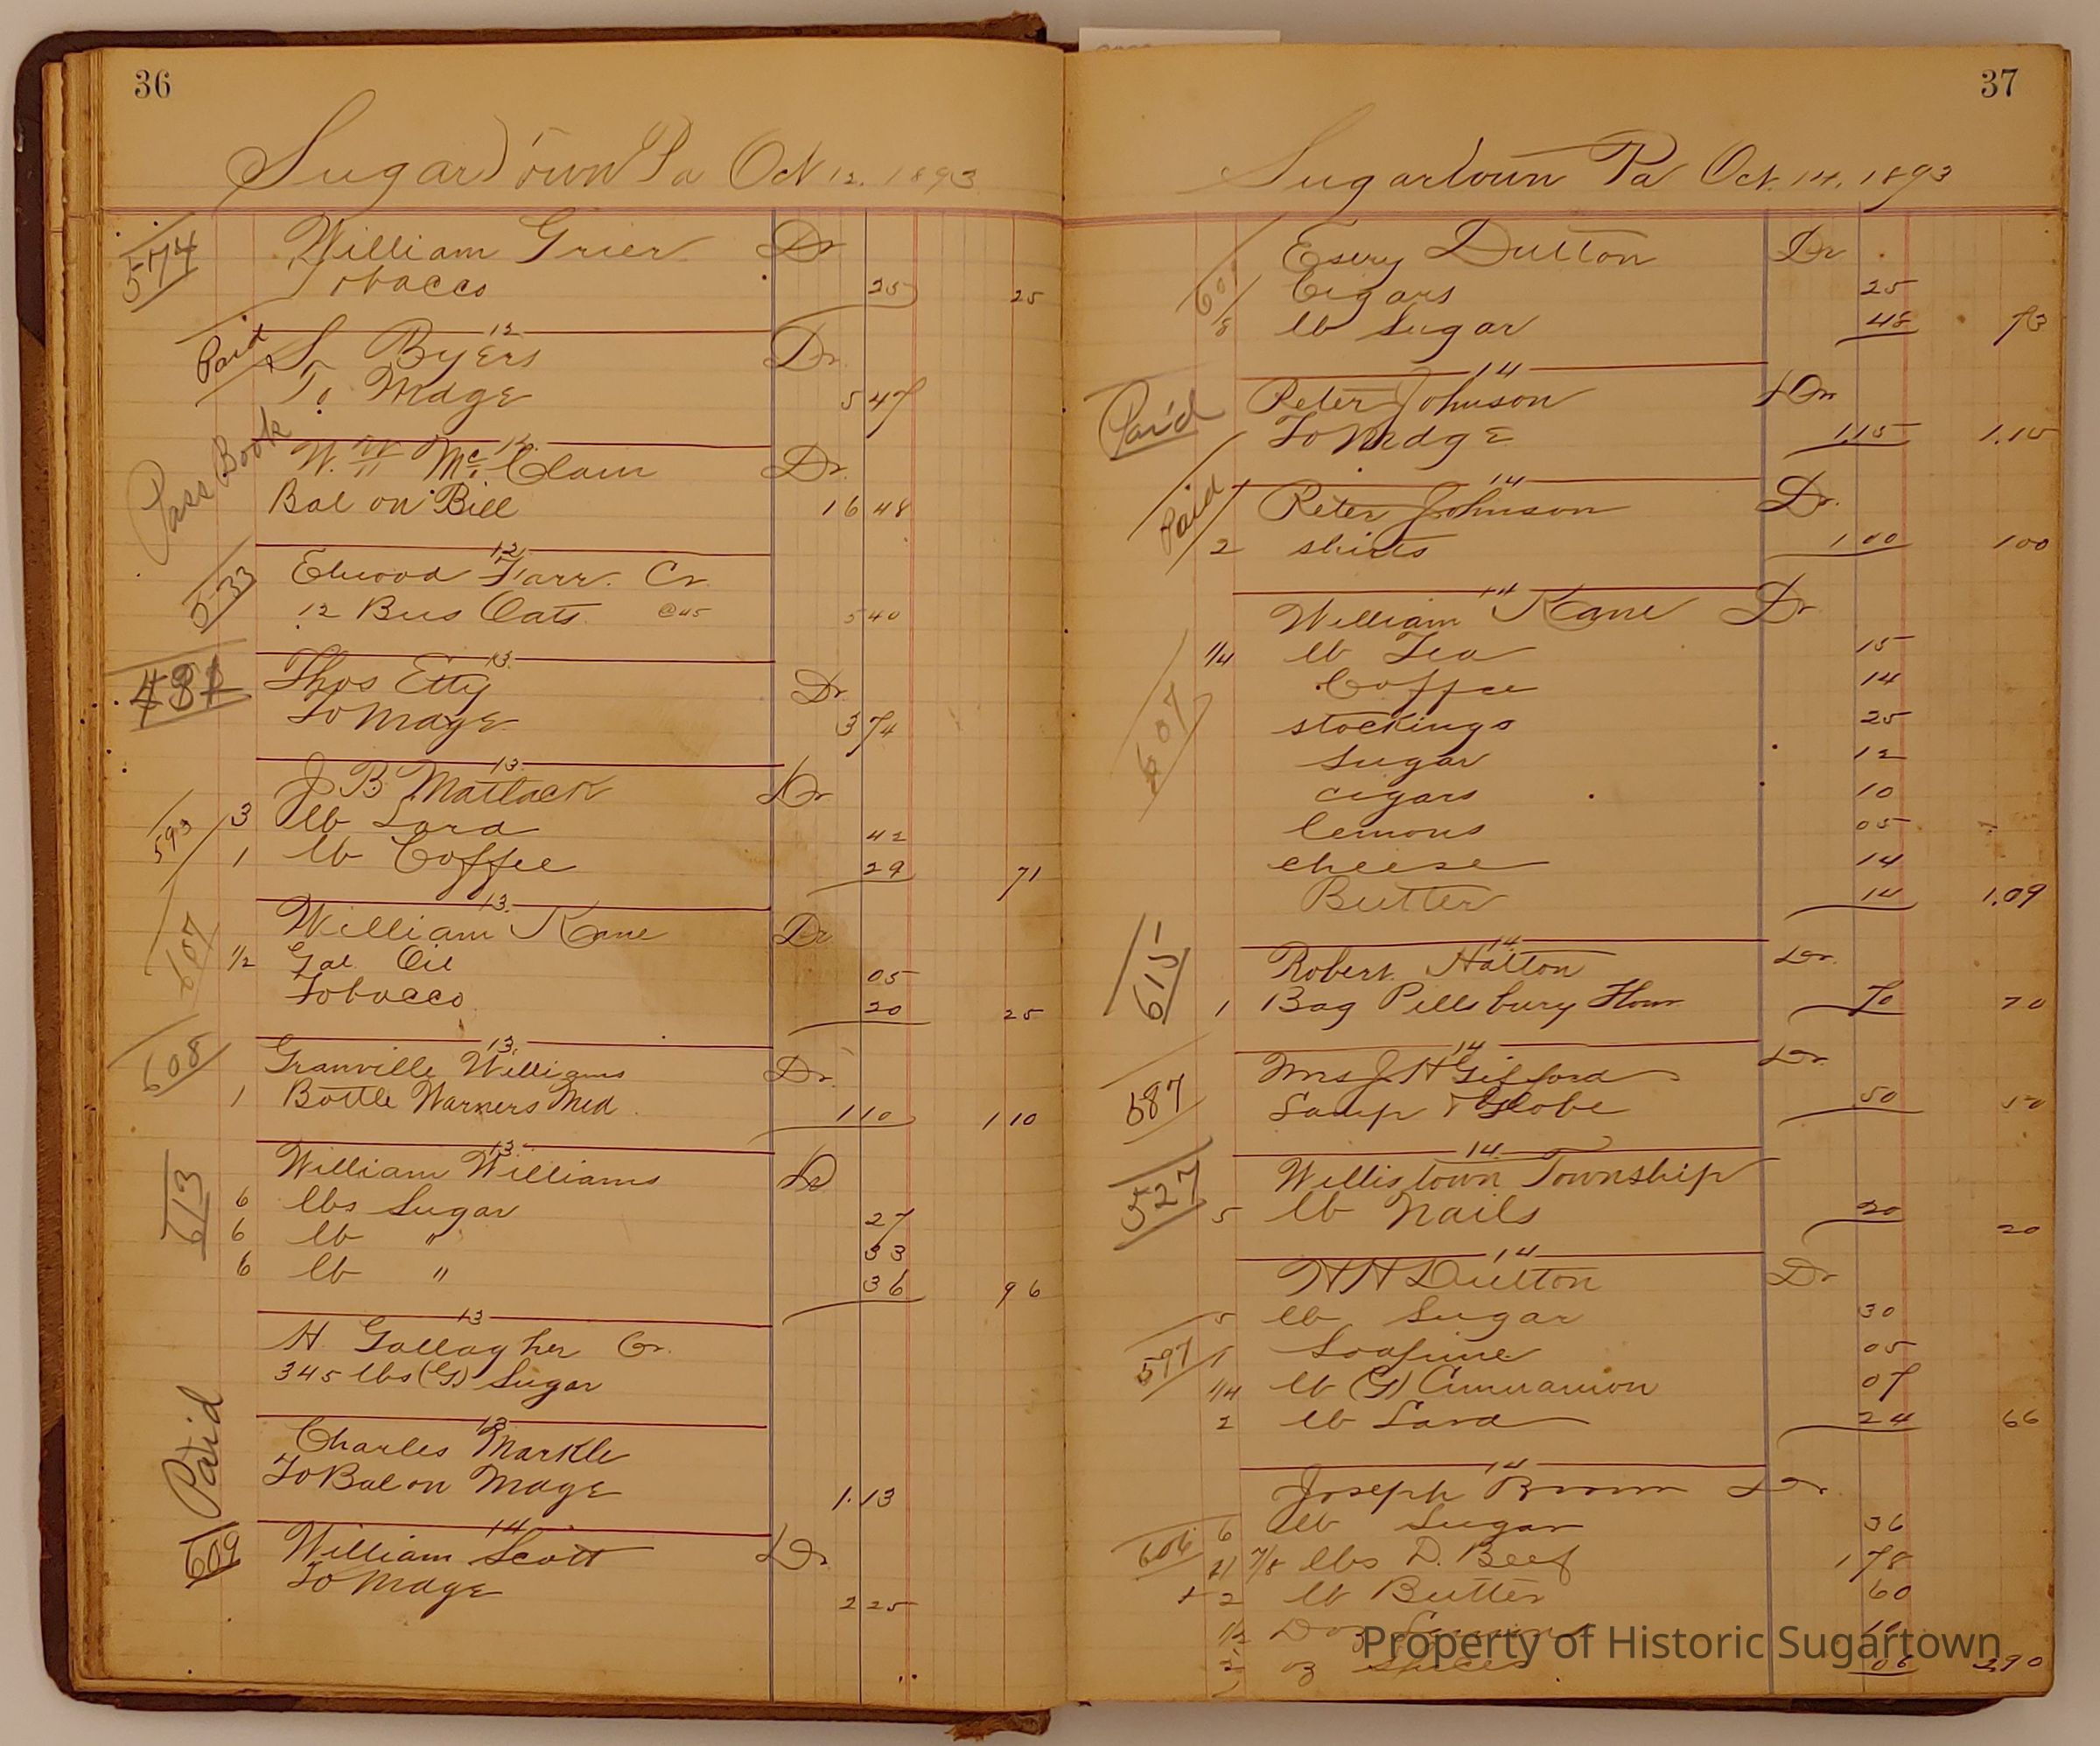 36
Sugartown Pa Oct 12. 1893
574 William Grier Dr
Tobacco 25 25
12
Paid S Byers Dr
To Mdge 5 47
12
Pass Book W. W. McClain Dr.
Bal on Bill 16 48
12
533 Elwood Farr. Cr.
12 Bus Oats @45 5 40
13
481 Thos Etty Dr
To Mdge 3 74
13
J B Matlack Dr
593 3 lb Lard 42
1 lb Coffee 29 71
13.
607 William Kane Dr
1/2 Gal Oil 05
Tobacco 20 25
13
608 Granville Williams Dr.
1 Bottle Warners Med. 1 10 1 10
13
613 William Williams Dr
6 lbs Sugar 27
6 lb " 33
6 lb " 36 96
13
H. Gallagher Cr.
345 lbs (G) Sugar
13
Paid Charles Markle
To Bal on Mdge 1.13
14
609 William Scott Dr.
To Mdge 2 25
37
Sugartown Pa Oct. 14, 1893
Esery Dutton Dr
Cigars 25
8 lb Sugar 48 73
14
Paid Peter Johnson Dr
To Mdge 1.15 1.15
14
Paid Peter Johnson Dr.
2 shirts 1 00 1 00
14
William Kane Dr
607 1/4 lb Tea 15
Coffee 14
stockings 25
Sugar 12
cigars 10
lemons 05
cheese 14
Butter 14 1.09
14
615 Robert Hatton Dr.
1 Bag Pillsbury Flour 70 70
14
587 Mrs J H Gifford Dr.
Lamp & Globe 50 50
14
527 Willistown Township
5 lb Nails 20 20
14
H H Dutton Dr
5 lb Sugar 30
597 1 Soapine 05
1/4 lb (G) Cinnamon 07
2 lb Lard 24 66
14
Joseph Brown Dr.
606 6 lb Sugar 36
7/8 lbs D. Beef 1 78
+ 2 lb Butter 60
1/2 Doz Lemons 10
2 oz Spices 06 2 90
Property of Historic Sugartown